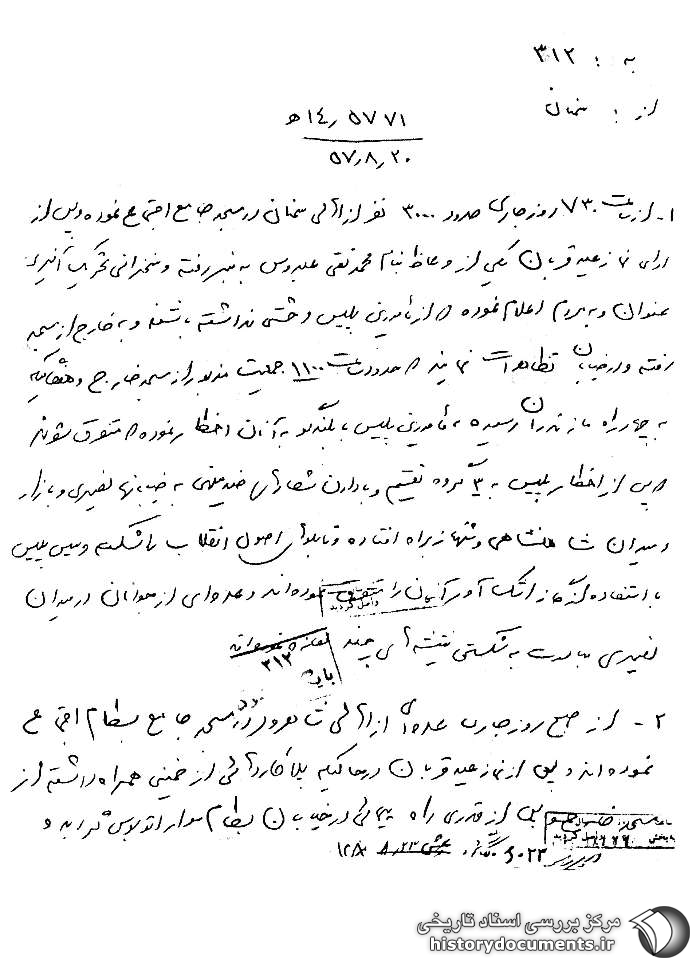 به : ۳۱۲
از : سمنان
۱۴٫۵۷۷۱ ه
۵۷٫۸٫۲۰
۱- از ساعت ۷۳۰ روز جاری حدود ۳۰۰۰ نفر از اهالی سمنان در مسجد جامع اجتماع نموده و پس از
ادای نماز عید قربان یکی از وعاظ بنام محمد تقی عبدوس به منبر رفته و سخنرانی تحریک آمیزی
عنوان و به مردم اعلام نموده که از مأمورین پلیس وحشتی نداشته باشند و به خارج از مسجد
رفته و در خیابان تظاهرات نمایند که حدود ساعت ۱۱۰۰ جمعیت مزبور از مسجد خارج و هنگامیکه
به چهار راه مازندران رسیده مأمورین پلیس با بلندگو به آنان اخطار نموده که متفرق شوند
که پس از اخطار پلیس به ۳ گروه تقسیم و با دادن شعارهای ضد میهنی به خیابانهای نصیری و بازار
و میدان شاهنشاهی و تهران براه افتاده و تابلوهای اصول انقلاب را شکسته و سپس پلیس
با استفاده از گاز اشک آور آنان را متفرق نموده اند و عده ای از جوانان در میدان
نصیری مبادرت به شکستن شیشه های چند
۳۱۲
بایت
۲- از صبح روز جاری عده ای از اهالی شاهرود در مسجد جامع بسطام اجتماع
نموده اند و پس از نماز عید قربان در حالیکه پلاکاردهائی از خمینی همراه داشته از
مسجد خارج و پس از قدری راه پیمائی در خیابان بسطام سوار اتوبوس گردیده و
۶۰۲۳ ۸٫۲۳
مرکز بررسی اسناد تاریخی
historydocuments.ir